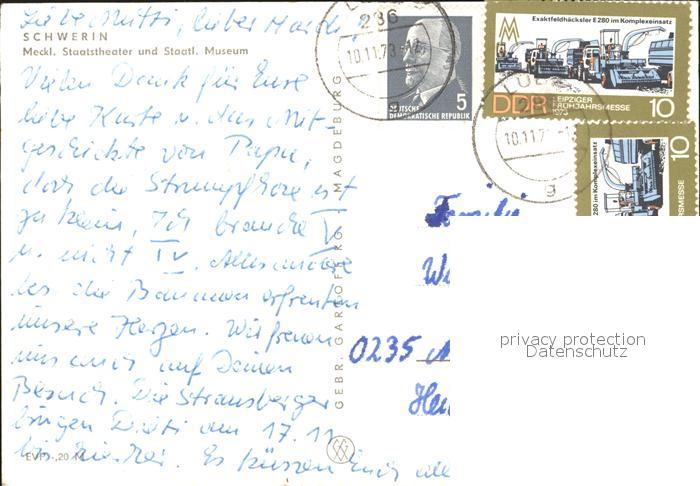 Liebe Mutti, lieber
SCHWERIN
Meckl. Staatstheater und Staatl. Museum
Vielen Dank für Eure
liebe Karte u. das Mit-
geschickte von Papa,
doch die Strumpfhose ist
zu klein, Ich brauche V
u. nicht IV. Alles andere
bes. die Bananen erfreuten
unsere Herzen. Wir freuen
uns auch auf Deinen
Besuch. Die Strausberger
bringen Dieti am 17.11
EVP -,20 M
Es küssen Euch alle
GEBR. GARLOFF KG. MAGDEBURG
286
10.11.73
DEUTSCHE
DEMOKRATISCHE REPUBLIK
5
Exaktfeldhäcksler E 280 im Komplexeinsatz
DDR
LEIPZIGER
FRÜHJAHRSMESSE
1973
10
10.11.7
g
E 280 im Komplexeinsatz
RSMESSE
10
Familie
0235
privacy protection
Datenschutz